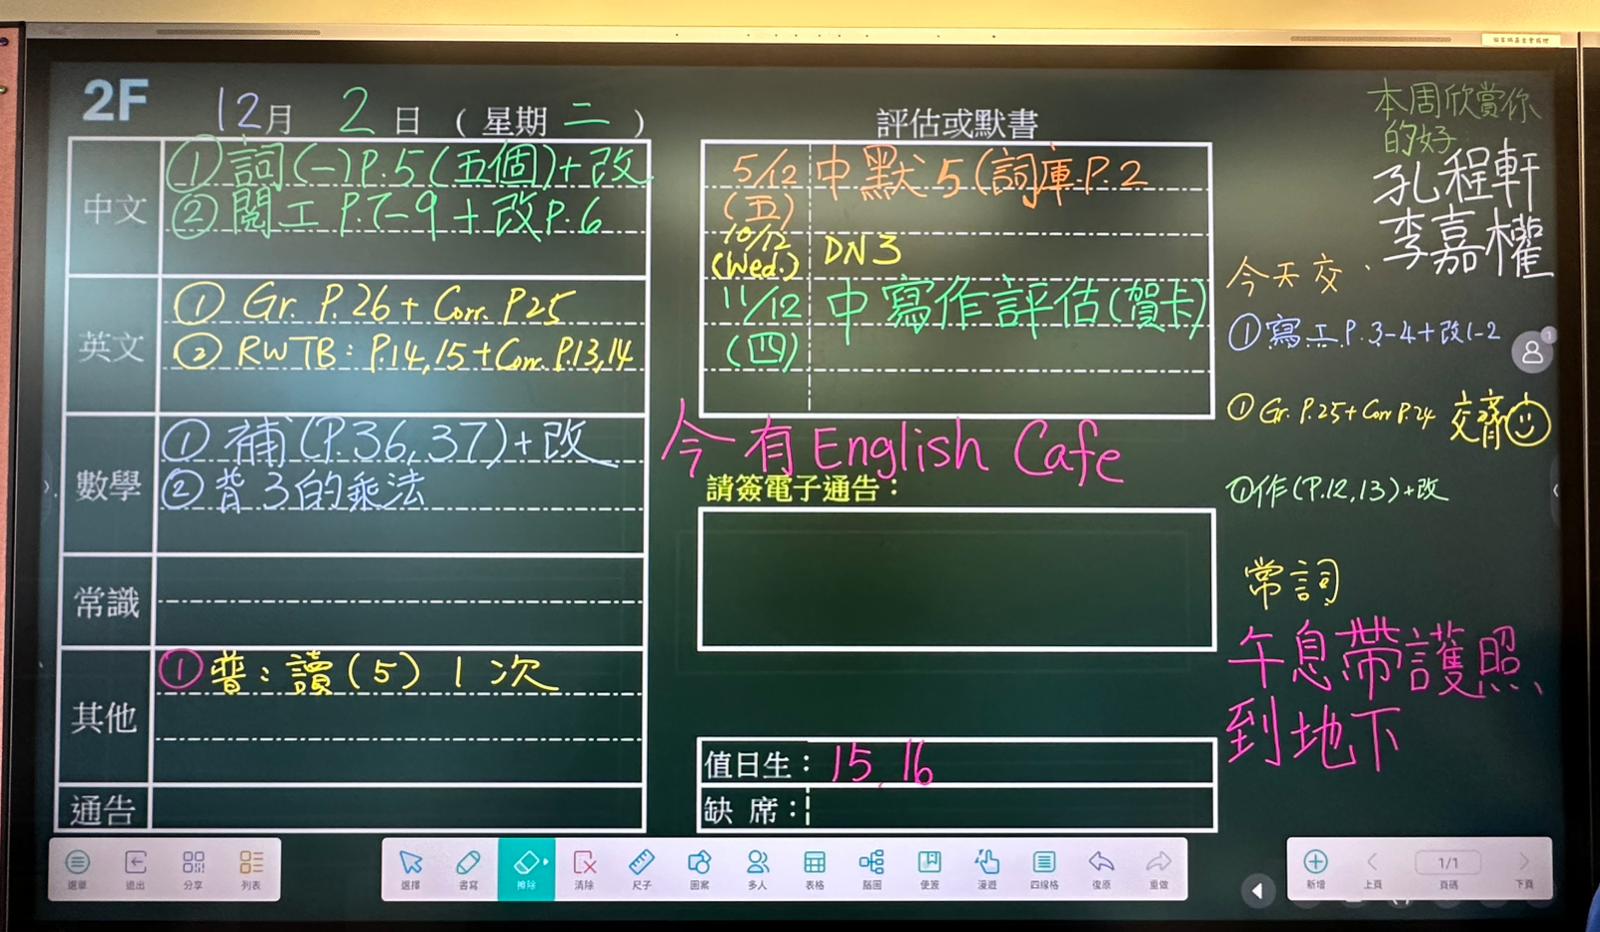 2F 12月 2日 (星期二)
中文
① 詞(一)P.5(五個)+改
② 閱工 P.7-9 + 改P.6
英文
① Gr. P.26 + Corr. P25
② RWTB: P.14,15 + Corr. P.13,14
數學
① 補(P.36,37)+改
② 背3的乘法
常識
其他
① 普:讀(5) 1 次
通告
評估或默書
5/12 (五) 中默5(詞庫P.2
10/12 (Wed.) DN3
11/12 (四) 中寫作評估(賀卡)
今有English Cafe
請簽電子通告:
值日生: 15, 16
缺席:
本周欣賞你
的好
孔程軒
李嘉權
今天交
①寫工P.3-4+改1-2
① Gr. P.25+Corr P.24 交齊
①作(P.12,13)+改
常詞
午息帶護照、
到地下
選單 退出 分享 列表
選擇 書寫 擦除 清除 尺子 圖案 多人 表格 腦圖 便簽 漫遊 四線格 復原 重做
新增 上頁 1/1 頁碼 下頁